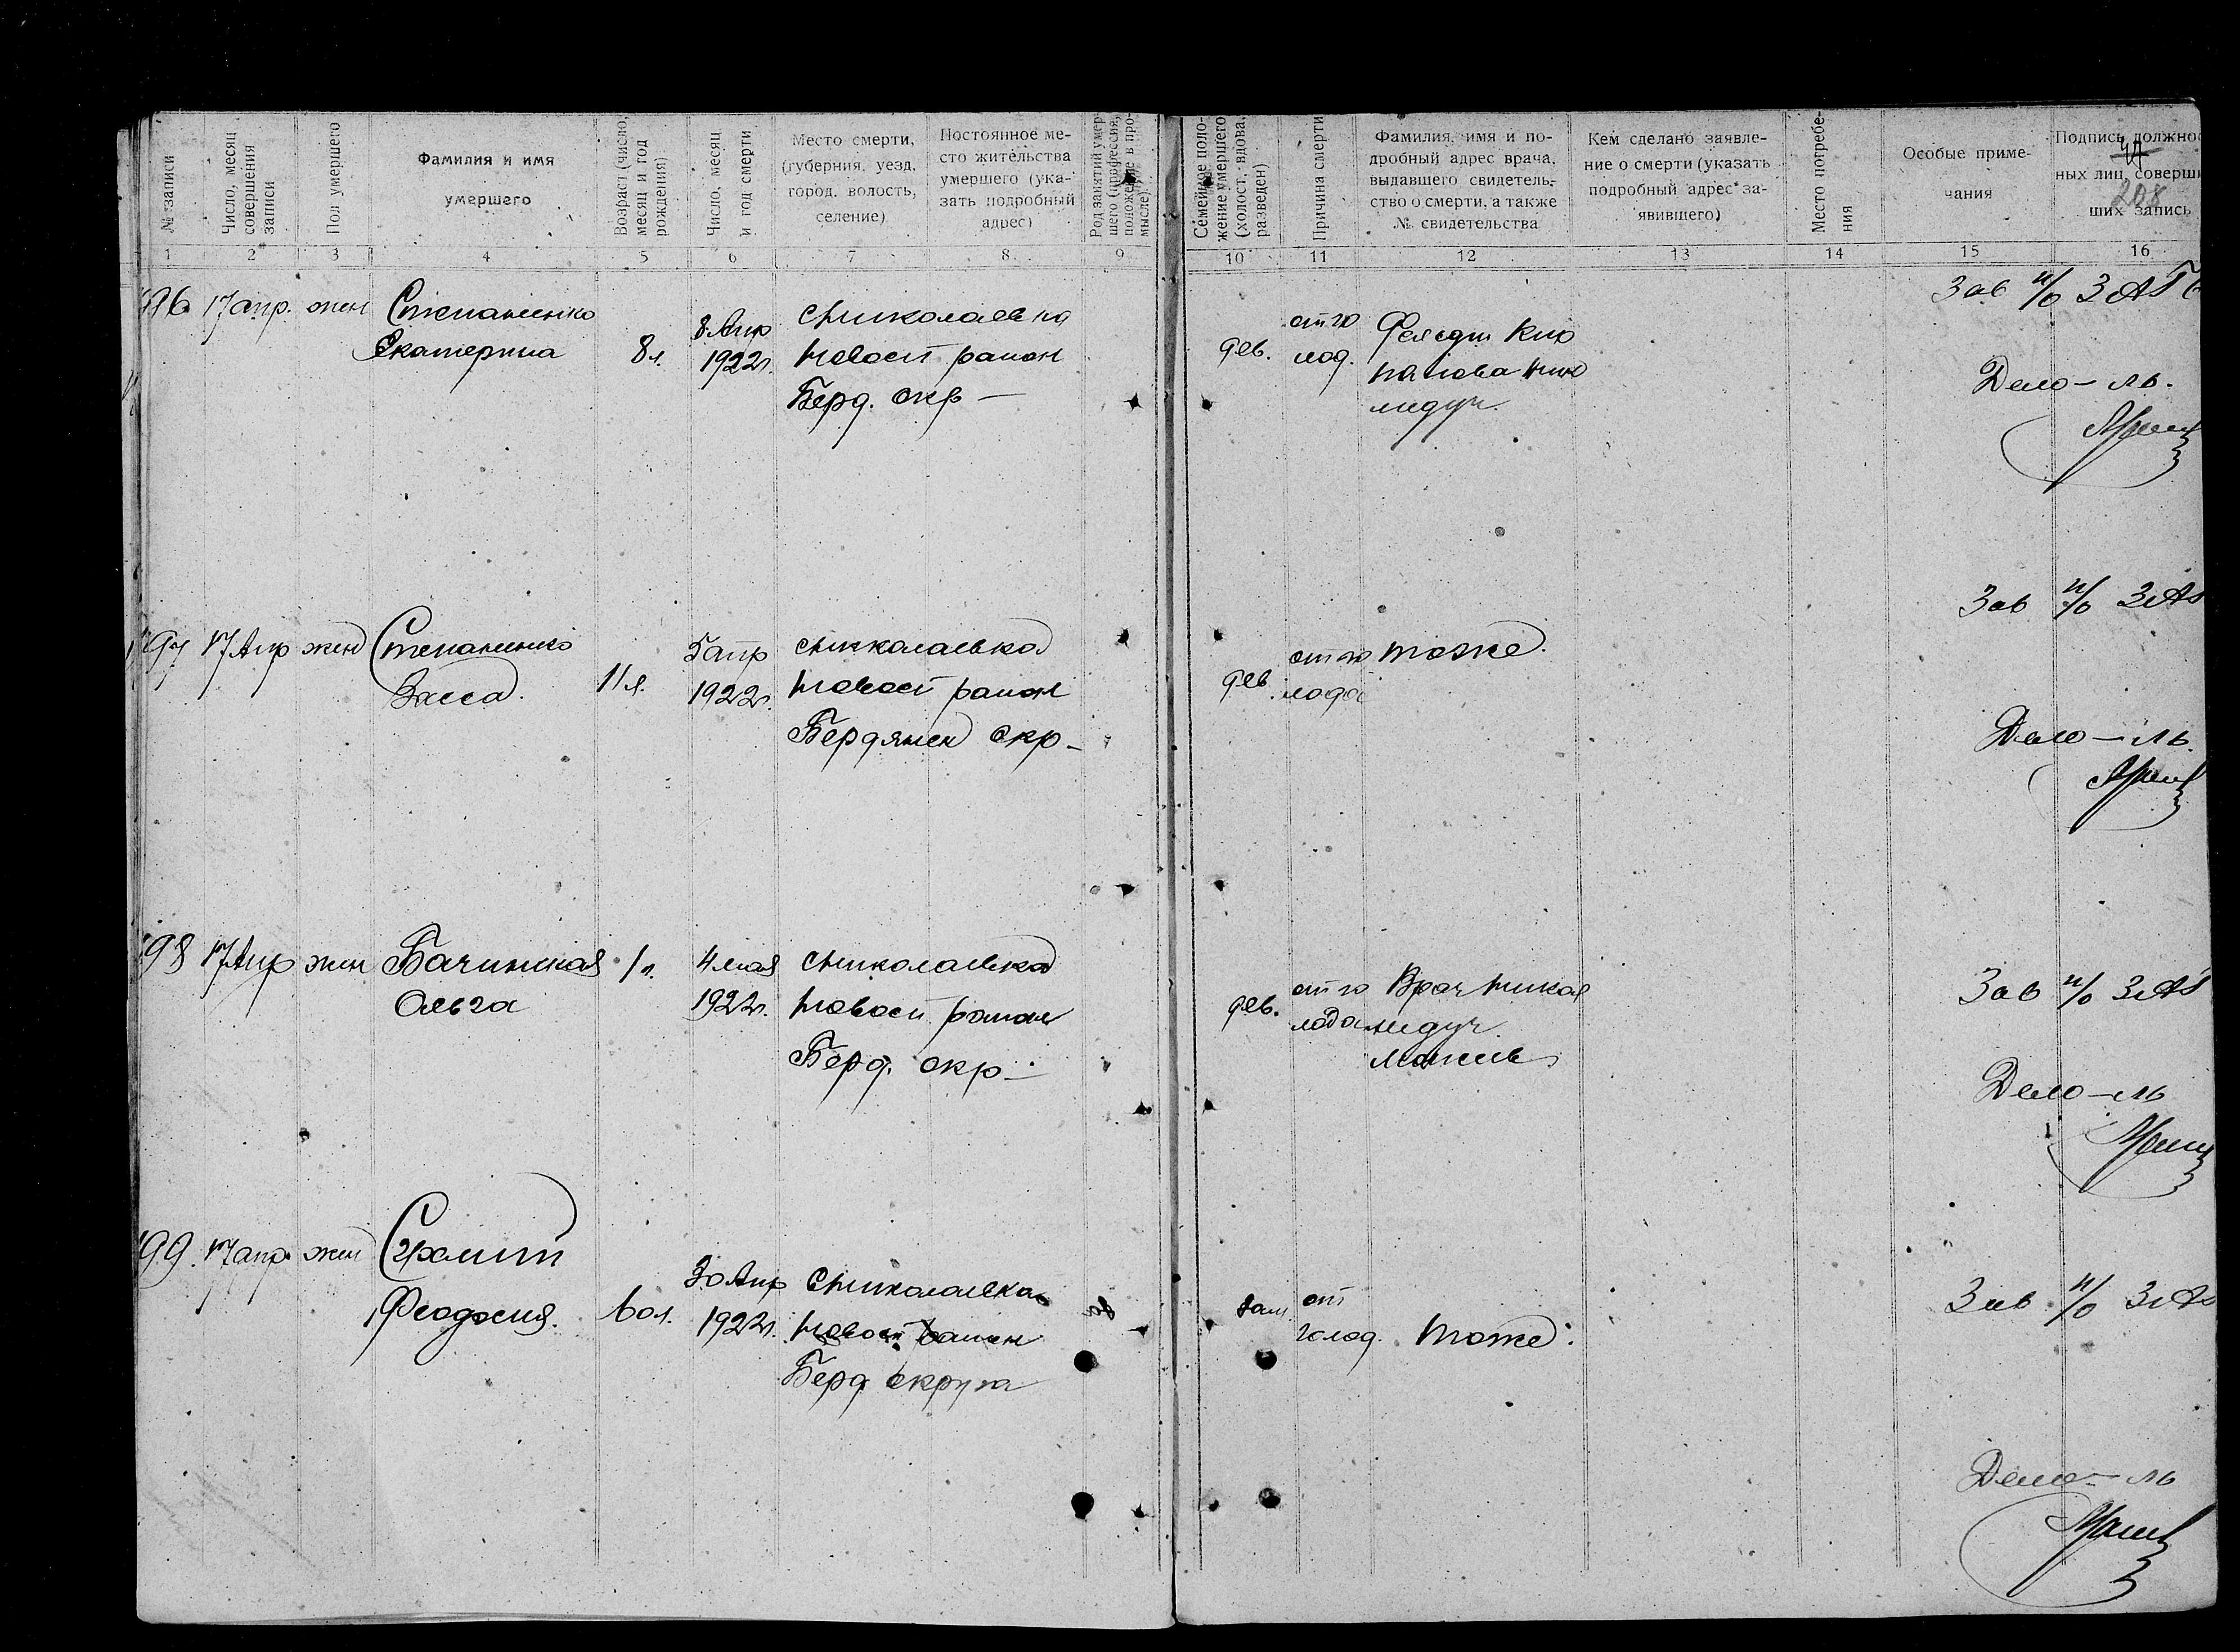 № записи
Число, месяц
совершения
записи
Пол умершего
Фамилия и имя
умершего
Возраст (число,
месяц и год
рождения)
Число, месяц
и год смерти
Место смерти,
(губерния, уезд,
город, волость,
селение)
Постоянное ме-
сто жительства
умершего (ука-
зать подробный
адрес)
Род занятий умер-
шего (профессия,
положение в про-
мысле)
Семейное поло-
жение умершего
(холост, вдова,
разведен)
Причина смерти
Фамилия, имя и по-
дробный адрес врача,
выдавшего свидетель-
ство о смерти, а также
№ свидетельства
Кем сделано заявле-
ние о смерти (указать
подробный адрес за-
явившего)
Место погребе-
ния
Особые приме-
чания
Подпись должно
ных лиц, соверши
ших запись
208
1 2 3 4 5 6 7 8 9 10 11 12 13 14 15 16
196 17 апр. жен Степаненко
Екатерина 8 л. 8 Апр
1922 г. с Николаевка
Новосп район
Берд. окр —
дев. от го
лод. Фельдш
медуч.
Зав п/о ЗАГС
Дело — ль.
197 17 Апр жен Степаненко
Васса 11 л. 5 апр
1922 г. с Николаевка
Новосп район
Бердянск окр —
дев от го
лода тоже.
Зав п/о ЗАГ
Дело — ль.
198 17 Апр жен Бачинская
Ольга 1 г. 4 мая
1922 г. с Николаевка
Новосп район
Берд. окр —
дев. от го
лода Врач Никол
медуч
Зав п/о ЗАГ
Дело — ль
199. 17 апр жен
Феодосия. 60 л. 30 Апр
1922 г. с Николаевка
Новосп район
Берд округа
зам. от
голод. тоже.
Зав п/о ЗАГ
Дело — ль